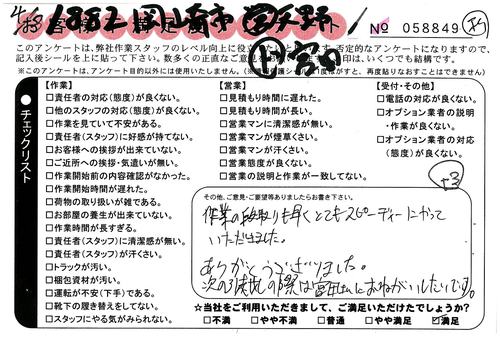 № 058849
このアンケートは、弊社作業スタッフのレベル向上に役立
否定的なアンケートになりますので、
記入後シールを上に貼って下さい。
印は、いくつでも結構です。
※このアンケートは、アンケート目的以外には使用いたしません。
再度貼りなおすことはできません)
チェックリスト
【作業】
□責任者の対応(態度)が良くない。
□他のスタッフの対応(態度)が良くない。
□作業を見ていて不安がある。
□責任者(スタッフ)に好感が持てない。
□お客様への挨拶が出来ていない。
□ご近所への挨拶・気遣いが無い。
□作業開始前の内容確認がなかった。
□作業開始時間が遅れた。
□荷物の取り扱いが雑である。
□お部屋の養生が出来ていない。
□作業時間が長すぎる。
□責任者(スタッフ)に清潔感が無い。
□責任者(スタッフ)が汗くさい。
□トラックが汚い。
□梱包資材が汚い。
□運転が不安(下手)である。
□靴下の履き替えをしてない。
□スタッフにやる気がみられない。
【営業】
□見積もり時間に遅れた。
□見積もり時間が長い。
□営業マンに清潔感が無い。
□営業マンが煙草くさい。
□営業マンが汗くさい。
□営業態度が良くない。
□営業の説明と作業が一致してない。
【受付・その他】
□電話の対応が良くない。
□オプション業者の説明
・作業が良くない。
□オプション業者の対応
(態度)が良くない。
+3
その他、ご意見・ご要望等ありましたらお書き下さい。
作業の段取りも早くとてもスピーディーにやって
いただきました。
ありがとうございました。
☆当社をご利用いただきまして、ご満足いただけたでしょうか?
□不満 □やや不満 □普通 □やや満足 ☑満足